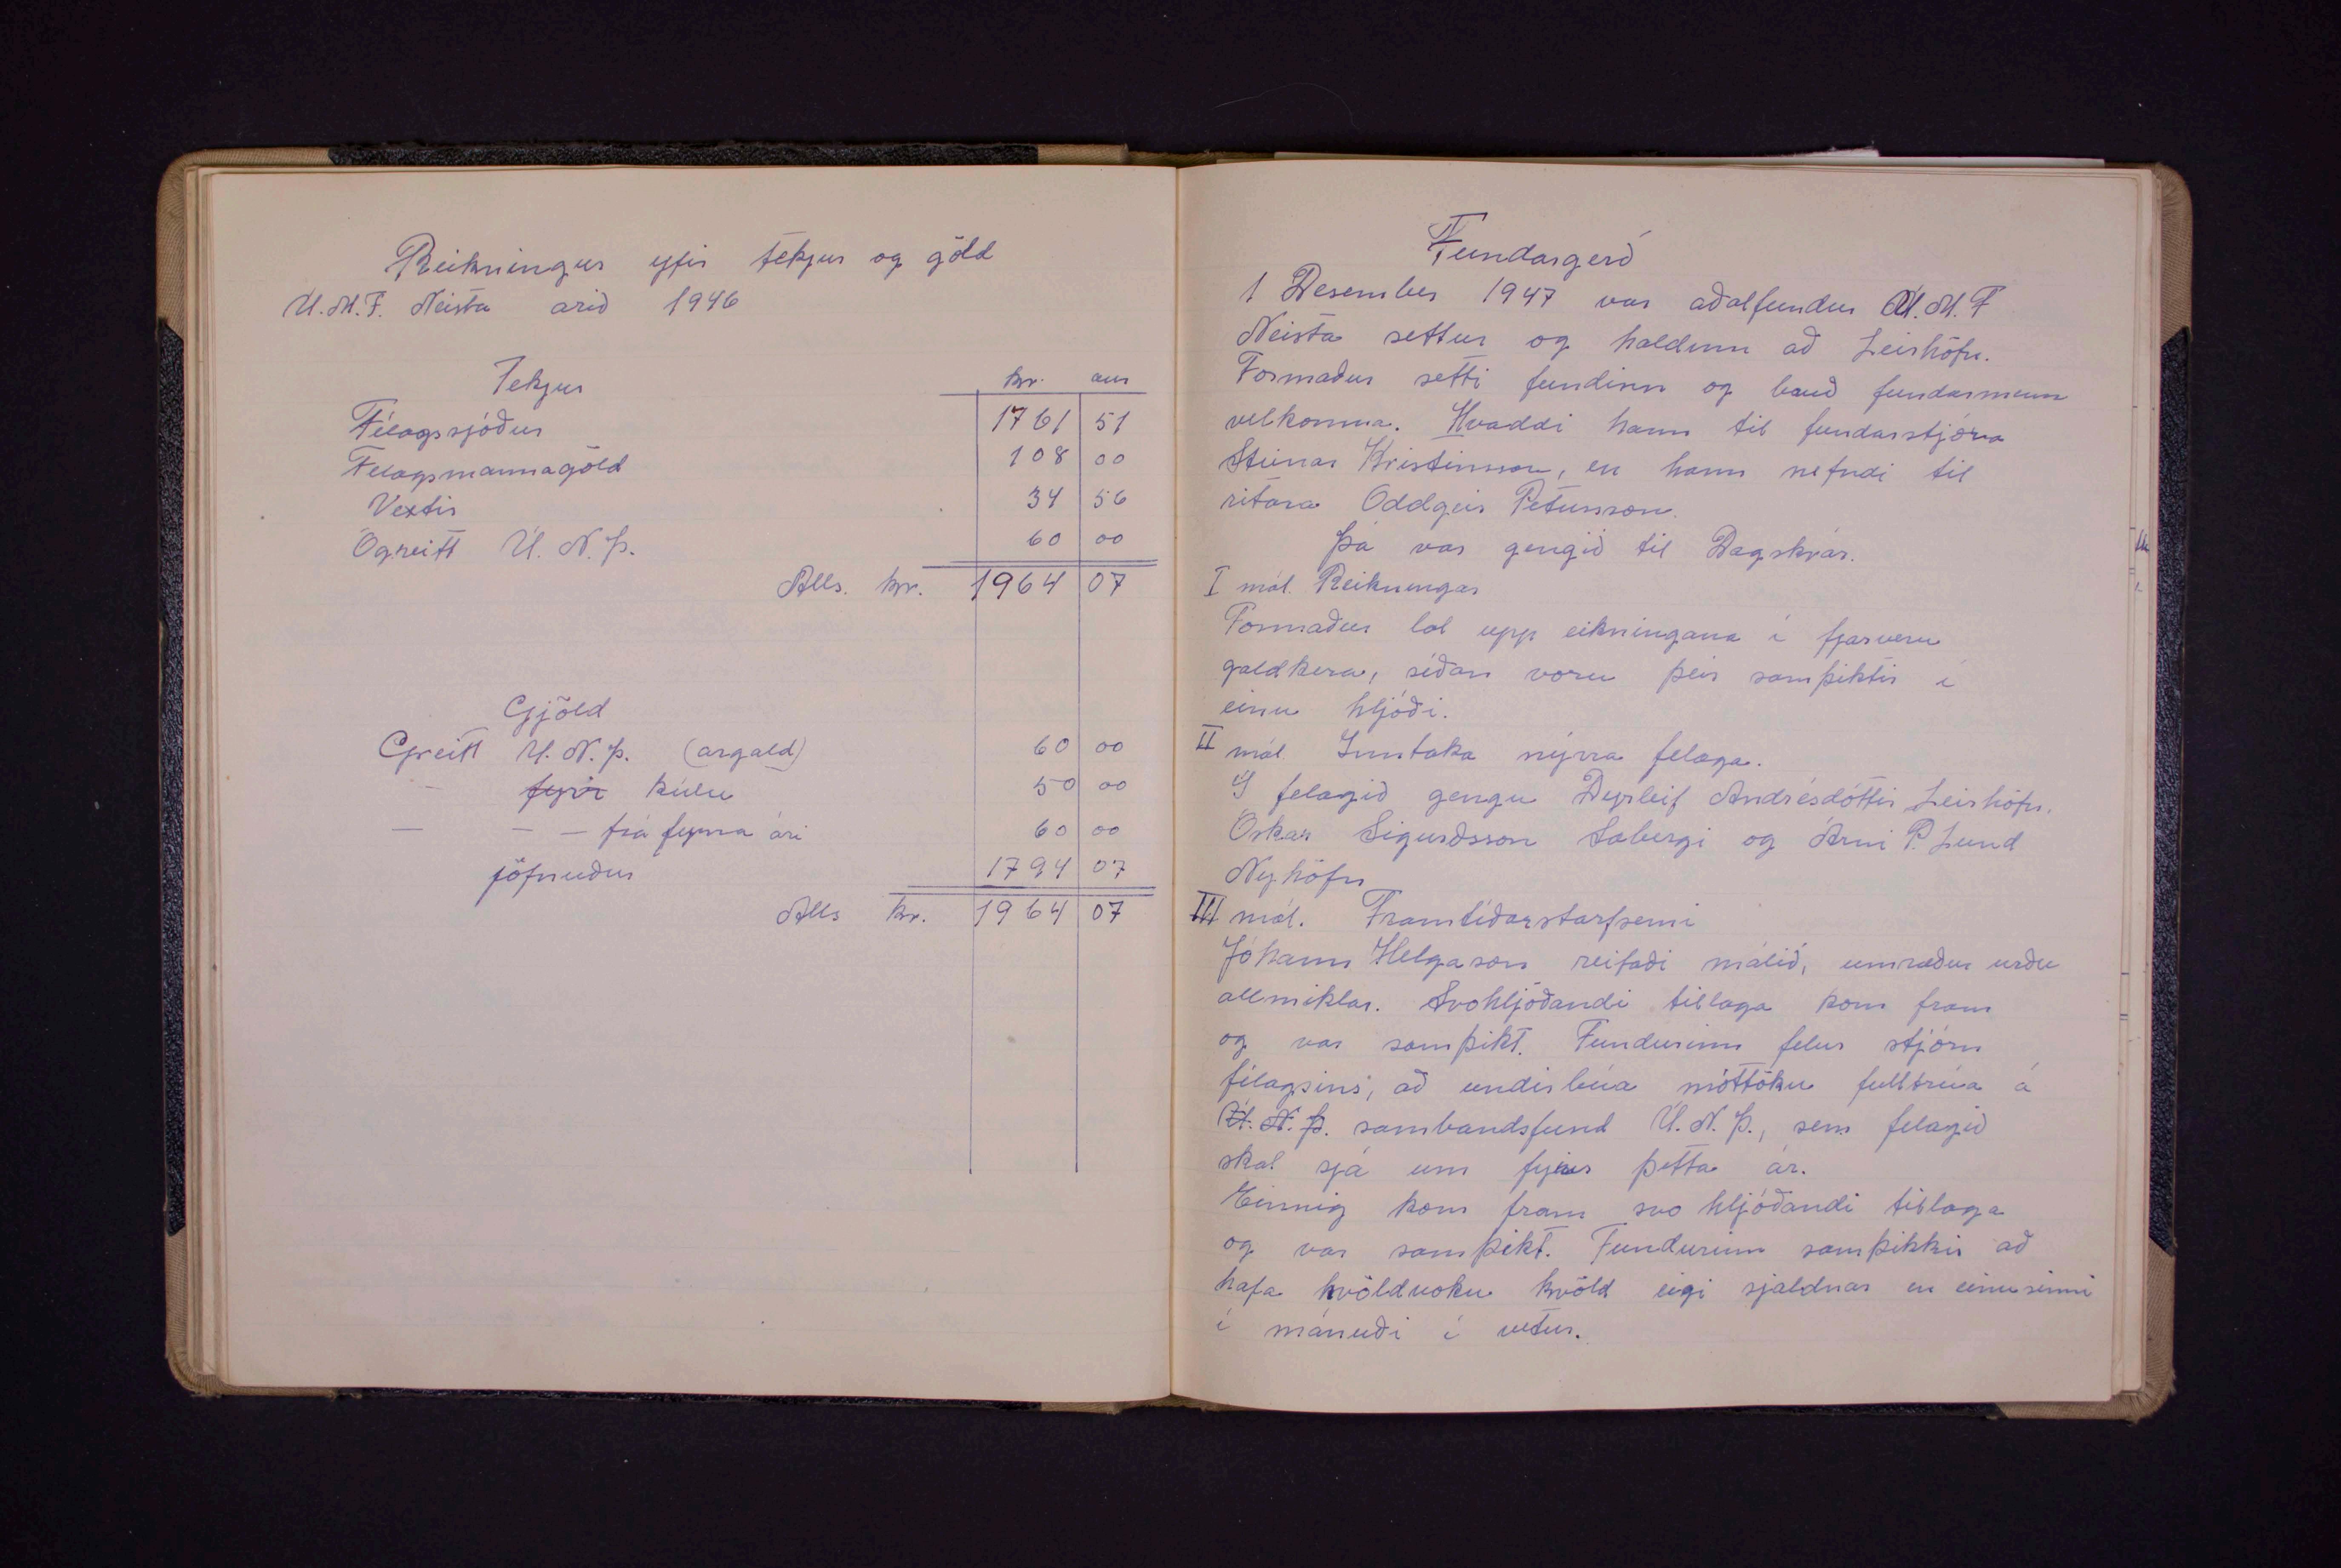 Reikningur yfir tekjur og göld
U.M.F. Neista arið 1946
Tekjur kr. aur
Félagssjóður 1761 51
Félagsmannagöld 108 00
Vextir 34 56
Ógreitt U.N.Þ. 60 00
Alls. kr. 1964 07
Gjöld
Greitt U.N.Þ. (argald) 60 00
- fyrir kúlu 50 00
— - — frá fyrra ári 60 00
jöfnuður 1794 07
Alls kr. 1964 07
Fundargerð
1 Desember 1947 var aðalfundur U.M.F
Neista settur og haldinn að Leirhöfn.
Formaður setti fundinn og bauð fundarmenn
velkomna. Hvaddi hann til fundarstjóra
Steinar Kristinsson, en hann nefndi til
ritara Oddgeir Pétursson.
Þá var gengið til Dagskrár.
I mál. Reikningar
Formaður las upp eikningana í fjarveru
galdkera, síðan voru þeir samþiktir í
einu hljóði.
II mál Inntaka nýrra felaga.
I felagið gengu Dyrleif Andrésdóttir Leirhöfn.
Óskar Sigurðsson Sabergi og Árni P. Lund
Nyhöfn
III mál. Framtíðarstarfsemi
Jóhann Helgason reifaði málið, umræður urðu
allmiklar. Svohljóðandi tillaga kom fram
og var samþikt. Fundurinn felur stjórn
félagsins, að undirbúa móttöku fulltrúa á
U.N.Þ. sambandsfund U.N.Þ., sem felagið
skal sjá um fyrir þetta ár.
Einnig kom fram svo hljóðandi tillaga
og var samþikt. Fundurinn samþikkir að
hafa kvöldvoku kvöld eigi sjaldnar en einusinni
í mánuði í vetur.